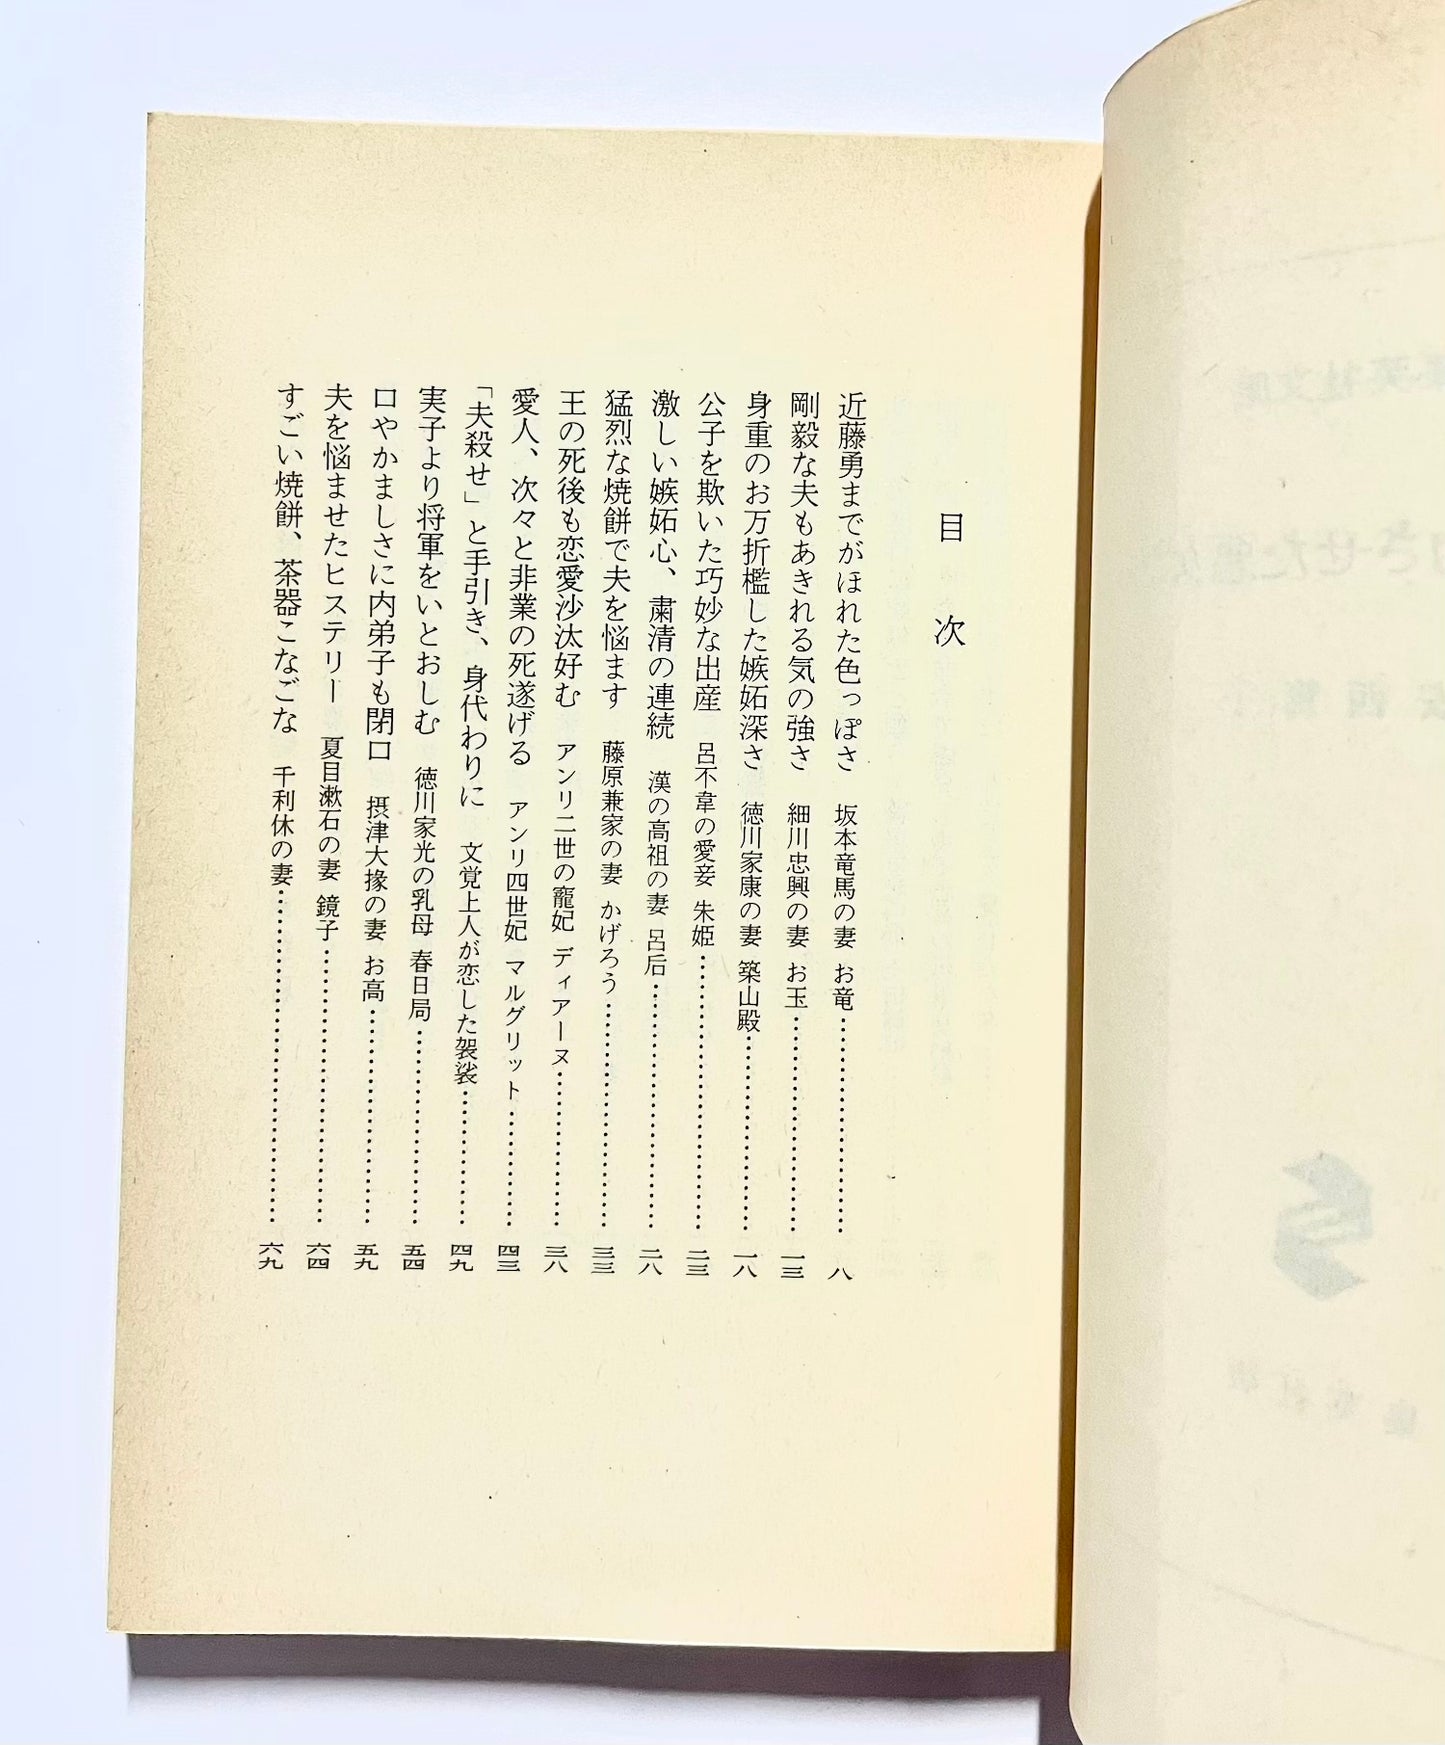 目次
近藤勇までがほれた色っぽさ 坂本竜馬の妻 お竜……………………八
剛毅な夫もあきれる気の強さ 細川忠興の妻 お玉……………………一三
身重のお万折檻した嫉妬深さ 徳川家康の妻 築山殿…………………一八
公子を欺いた巧妙な出産 呂不韋の愛妾 朱姫…………………………二三
激しい嫉妬心、粛清の連続 漢の高祖の妻 呂后………………………二八
猛烈な焼餅で夫を悩ます 藤原兼家の妻 かげろう……………………三三
王の死後も恋愛沙汰好む アンリ二世の寵妃 ディアーヌ……………三八
愛人、次々と非業の死遂げる アンリ四世妃 マルグリット…………四三
「夫殺せ」と手引き、身代わりに 文覚上人が恋した袈裟……………四九
実子より将軍をいとおしむ 徳川家光の乳母 春日局…………………五四
口やかましさに内弟子も閉口 摂津大掾の妻 お高……………………五九
夫を悩ませたヒステリー 夏目漱石の妻 鏡子…………………………六四
すごい焼餅、茶器こなごな 千利休の妻…………………………………六九